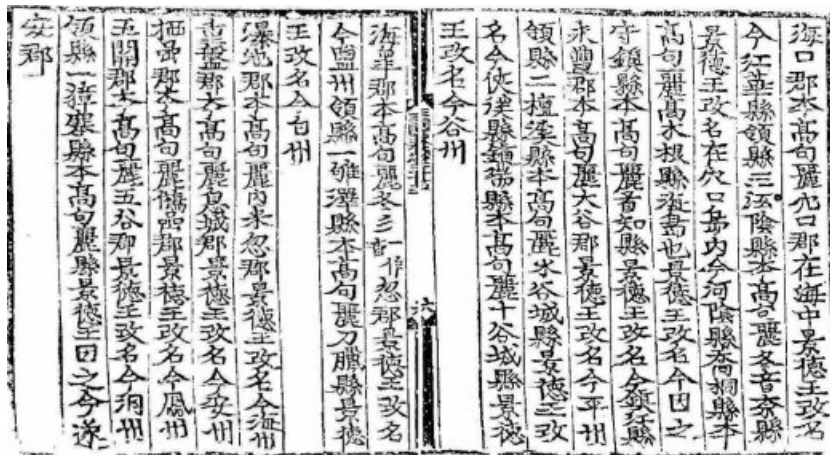 海口郡本高句麗穴口郡在海中景德王改名
今江華縣領縣三江陰縣本高句麗冬音奈縣
景德王改名在穴口島內今河陰縣喬桐縣本
高句麗高木根縣海島也景德王改名今因之
守鎭縣本高句麗首知縣景德王改名今鎭江縣
永豐郡本高句麗大谷郡景德王改名今平州
領縣二檀溪縣本高句麗水谷城縣景德王改
名今俠溪縣鎭瑞縣本高句麗十谷城縣景德
王改名今谷州
六
海皐郡本高句麗冬彡一作音忽郡景德王改名
今鹽州領縣一雊澤縣本高句麗刀臘縣景德
王改名今白州
瀑池郡本高句麗內米忽郡景德王改名今海州
重盤郡本高句麗息城郡景德王改名今安州
栖嵒郡本高句麗鵂嵒郡景德王改名今鳳州
五關郡本高句麗五谷郡景德王改名今洞州
領縣一獐塞縣本高句麗縣景德王因之今遂
安郡